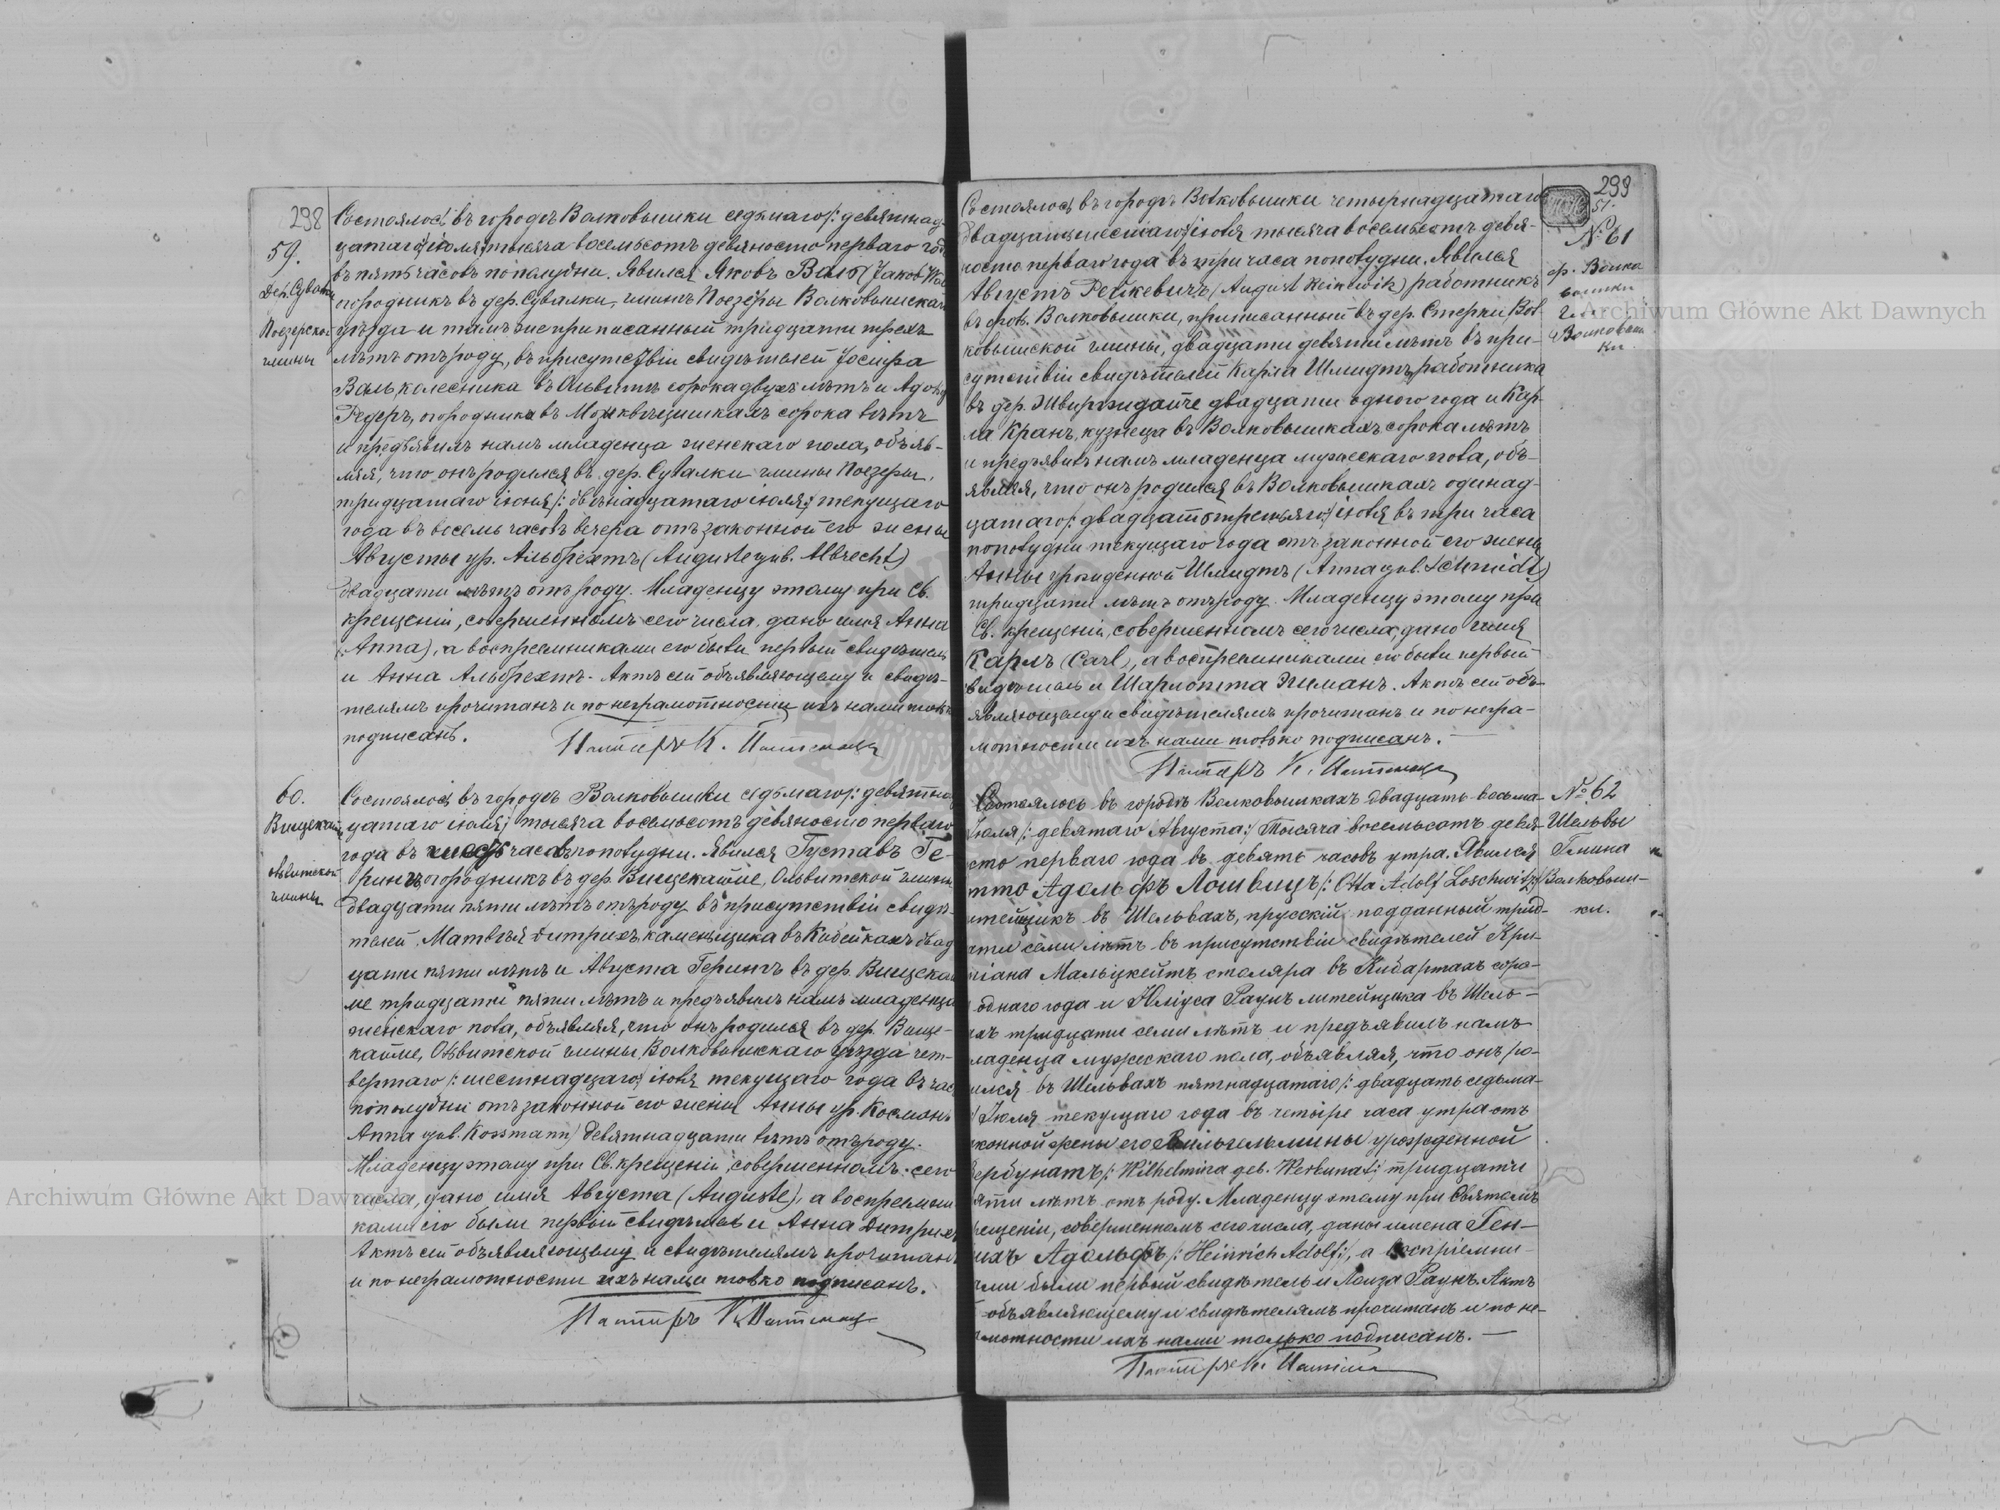 298
59.
Дер. Сувалки
Поезерской
гмины
Состоялось въ городѣ Волковышки седьмаго /: девятнад-
цатаго :/ іюля тысяча восемьсотъ девяносто перваго года
въ пять часовъ пополудни. Явился Яковъ Валь (Jakob
огородникъ въ дер. Сувалки, гмины Поезёры Волковышскаго
уѣзда и тамъ же приписанный тридцати трехъ
лѣтъ отъ роду, въ присутствіи свидѣтелей Іосифа
Валь колесника въ Ольвитѣ сорока двухъ лѣтъ и Адольфа
Редеръ, огородника въ сорока лѣтъ
и предъявилъ намъ младенца женскаго пола, объяв-
ляя, что онъ родился въ дер. Сувалки гмины Поезёры,
тридцатаго іюня /: двѣнадцатаго іюля :/ текущаго
года въ восемь часовъ вечера отъ законной его жены
Августы ур. Альбрехтъ (Auguste geb. Albrecht)
двадцати лѣтъ отъ роду. Младенцу этому при Св.
крещеніи, совершенномъ сего числа, дано имя Анна
(Anna), а воспреемниками его были первый свидѣтель
и Анна Альбрехтъ. Актъ сей объявляющему и свидѣ-
телямъ прочитанъ и по неграмотности ихъ нами только
подписанъ.
Пасторъ К.
60.
Вищекайме
Ольвитской
гмины
Состоялось въ городѣ Волковышки седьмаго /: девятнад-
цатаго іюля :/ тысяча восемьсотъ девяносто перваго
года въ шесть часовъ пополудни. Явился Густавъ Ге-
рингъ огородникъ въ дер. Вищекайме, Ольвитской гмины
двадцати пяти лѣтъ отъ роду въ присутствіи свидѣ-
телей Матвѣя Дитрихъ каменьщика въ Кибейкахъ двад-
цати пяти лѣтъ и Августа Герингъ въ дер. Вищекай-
ме тридцати пяти лѣтъ и предъявилъ намъ младенца
женскаго пола, объявляя, что онъ родился въ дер. Вище-
кайме, Ольвитской гмины Волковышскаго уѣзда чет-
вертаго /: шестнадцаго :/ іюля текущаго года въ часъ
пополудни отъ законной его жены Анны ур. Косманъ
Anna geb. Kossmann) девятнадцати лѣтъ отъ роду.
Младенцу этому при Св. крещеніи, совершенномъ сего
числа, дано имя Августа (Auguste), а воспреемни-
ками его были первый свидѣтель и Анна Дитрихъ
Актъ сей объявляющему и свидѣтелямъ прочитанъ
и по неграмотности ихъ нами только подписанъ.
Пасторъ К.
299
51.
№ 61
гр. Волко
вышки
Волковыш
ки.
Состоялось въ городѣ Волковышки четырнадцатаго
двадцать шестаго :/ іюля тысяча восемьсотъ девя-
носто перваго года въ три часа пополудни. Явился
Августъ Рейкевичъ (August Reikewik) работникъ
въ Волковышки, приписанный въ дер. Стерки Вол-
ковышской гмины, двадцати девяти лѣтъ въ при-
сутствіи свидѣтелей Карла Шмидтъ, работника
въ дер. двадцати одного года и Кар-
ла Кранъ, кузнеца въ Волковышкахъ сорока лѣтъ
и предъявилъ намъ младенца мужескаго пола, объ-
являя, что онъ родился въ Волковышкахъ одинад-
цатаго /: двадцать третьяго :/ іюля въ три часа
пополудни текущаго года отъ законной его жены
Анны урожденной Шмидтъ (Anna geb. Schmidt)
тридцати лѣтъ отъ роду. Младенцу этому при
Св. крещеніи, совершенномъ сего числа, дано имя
Карлъ (Carl), а воспреемниками его были первый
свидѣтель и Шарлотта Эгиманъ. Актъ сей объ-
являющему и свидѣтелямъ прочитанъ и по негра-
мотности ихъ нами только подписанъ.
Пасторъ К.
№ 62
Шельвы
Гмина
Волковыш-
ки.
Состоялось въ городѣ Волковышкахъ двадцать восьма-
Іюля /: девятаго Августа :/ Тысяча восемьсотъ девя-
сто перваго года въ девять часовъ утра. Явился
тто Адольфъ Лошвицъ /: Otto Adolf Loschwitz :/
итейщикъ въ Шельвахъ, прусскій подданный трид-
ати семи лѣтъ въ присутствіи свидѣтелей Кри-
тіана Мальцкейтъ столяра въ Кибартахъ соро-
одного года и Юліуса Раунъ литейщика въ Шель-
ахъ тридцати семи лѣтъ и предъявилъ намъ
ладенца мужескаго пола, объявляя, что онъ ро-
ился въ Шельвахъ пятнадцатаго /: двадцать седьма-
Іюля текущаго года въ четыре часа утра отъ
конной жены его Вильгельмины урожденной
ербунатъ /: Wilhelmina geb. Werbunat :/ тридцати
яти лѣтъ отъ роду. Младенцу этому при Святомъ
рещеніи, совершенномъ сего числа, даны имена Ген-
ихъ Адольфъ /: Heinrich Adolf :/, а воспріемни-
ами были первый свидѣтель и Лоиза Раунъ. Актъ
объявляющему и свидѣтелямъ прочитанъ и по не-
мотности ихъ нами только подписанъ.
Пасторъ К.
Archiwum Główne Akt Dawnych
Archiwum Główne Akt Dawnych